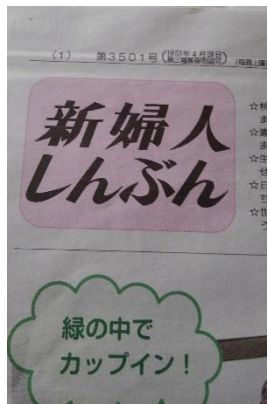 (1) 第3501号
新婦人
しんぶん
緑の中で
カップイン!